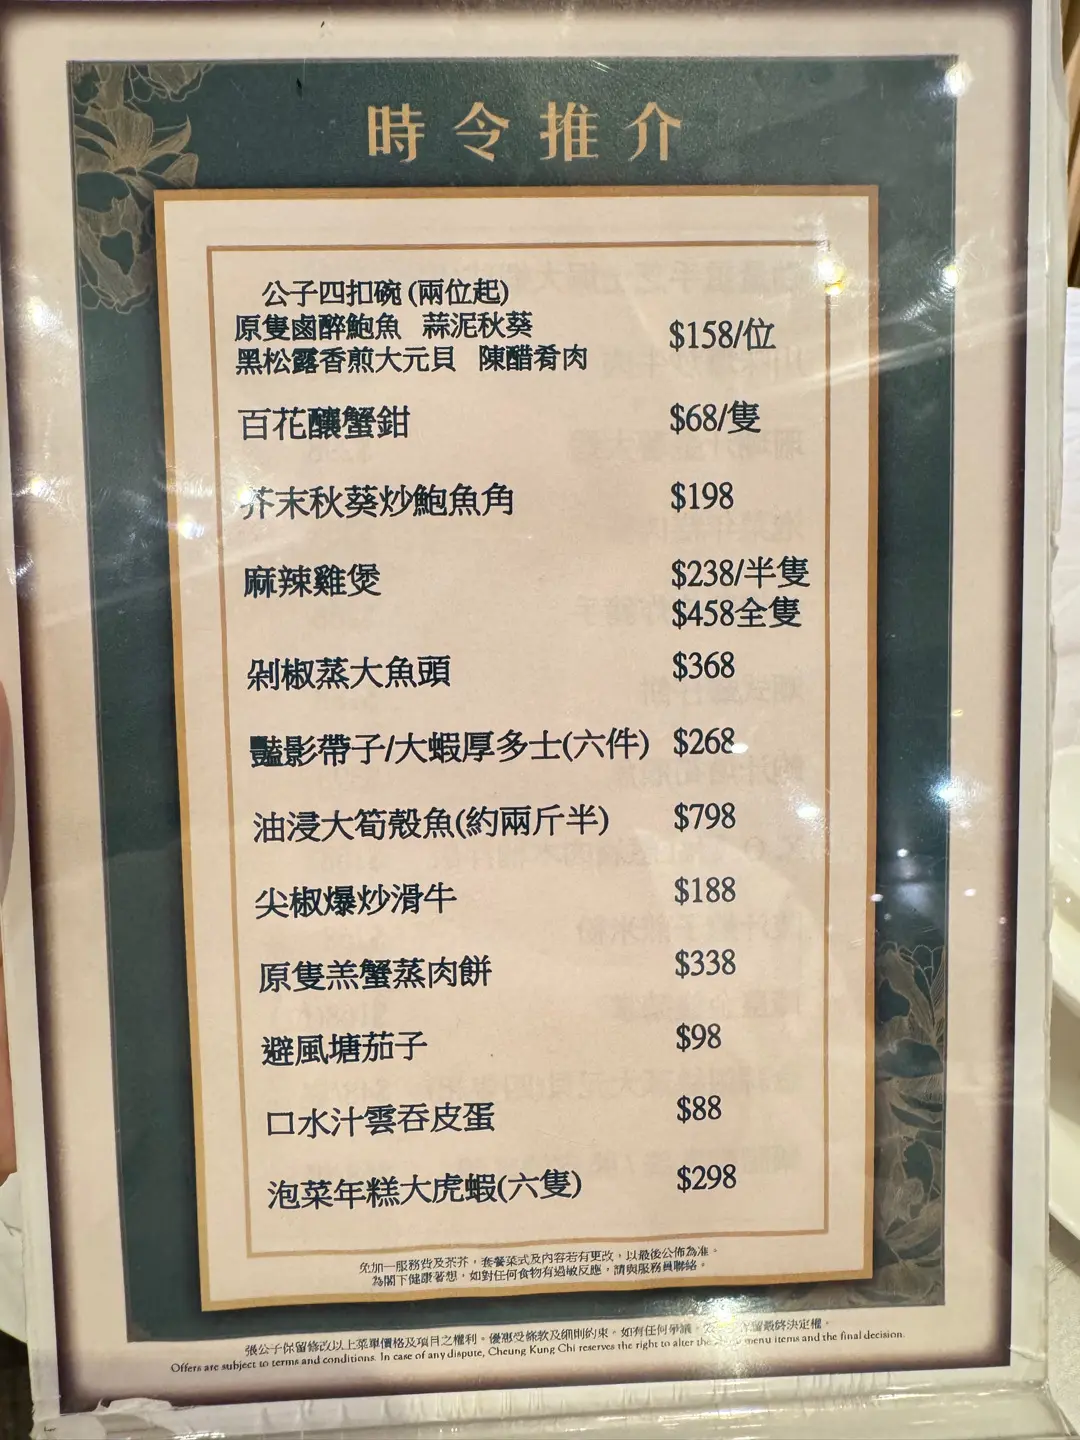 時令推介
公子四扣碗(兩位起)
原隻鹵醉鮑魚 蒜泥秋葵
黑松露香煎大元貝 陳醋肴肉
$158/位
百花釀蟹鉗 $68/隻
芥末秋葵炒鮑魚角 $198
麻辣雞煲 $238/半隻
$458全隻
剁椒蒸大魚頭 $368
豔影帶子/大蝦厚多士(六件) $268
油浸大筍殼魚(約兩斤半) $798
尖椒爆炒滑牛 $188
原隻羔蟹蒸肉餅 $338
避風塘茄子 $98
口水汁雲吞皮蛋 $88
泡菜年糕大虎蝦(六隻) $298
免加一服務費及茶芥，套餐菜式及內容若有更改，以最後公佈為准。
為閣下健康著想，如對任何食物有過敏反應，請與服務員聯絡。
張公子保留修改以上菜單價格及項目之權利。優惠受條款及細則約束。如有任何爭議，留最終決定權。
Offers are subject to terms and conditions. In case of any dispute, Cheung Kung Chi reserves the right to alter the menu items and the final decision.